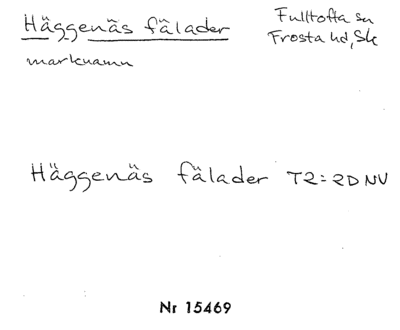 Häggenäs fälader
Fulltofta sn
Frosta hd, Sk
marknamn
Häggenäs fälader T2=2D NV
Nr 15469